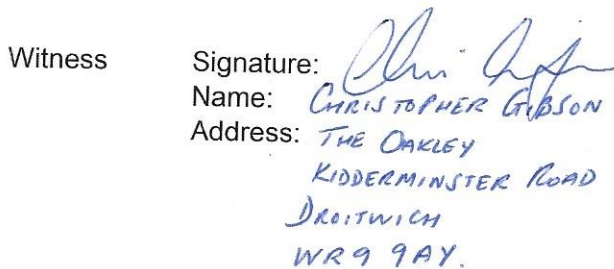 Witness Signature:
Name: CHRISTOPHER GIBSON
Address: THE OAKLEY
KIDDERMINSTER ROAD
DROITWICH
WR9 9AY.